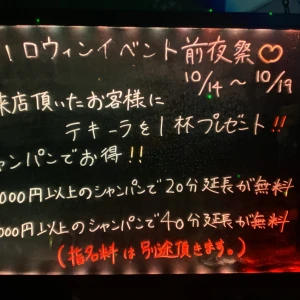 ハロウィンイベント 前夜祭♡
10/14 〜 10/19
来店頂いたお客様に
テキーラを1杯プレゼント!!
ャンパンでお得!!
000円以上のシャンパンで20分延長が無料
000円以上のシャンパンで40分延長が無料
(指名料は別途頂きます。)